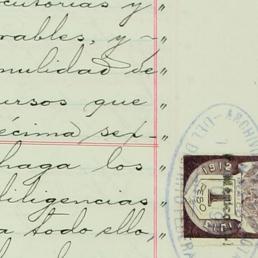 cutorias y
rables, y-
nulidad de
ursos que
écima sep-
haga los
iligencias
a todo ello,
1912
1
PESO